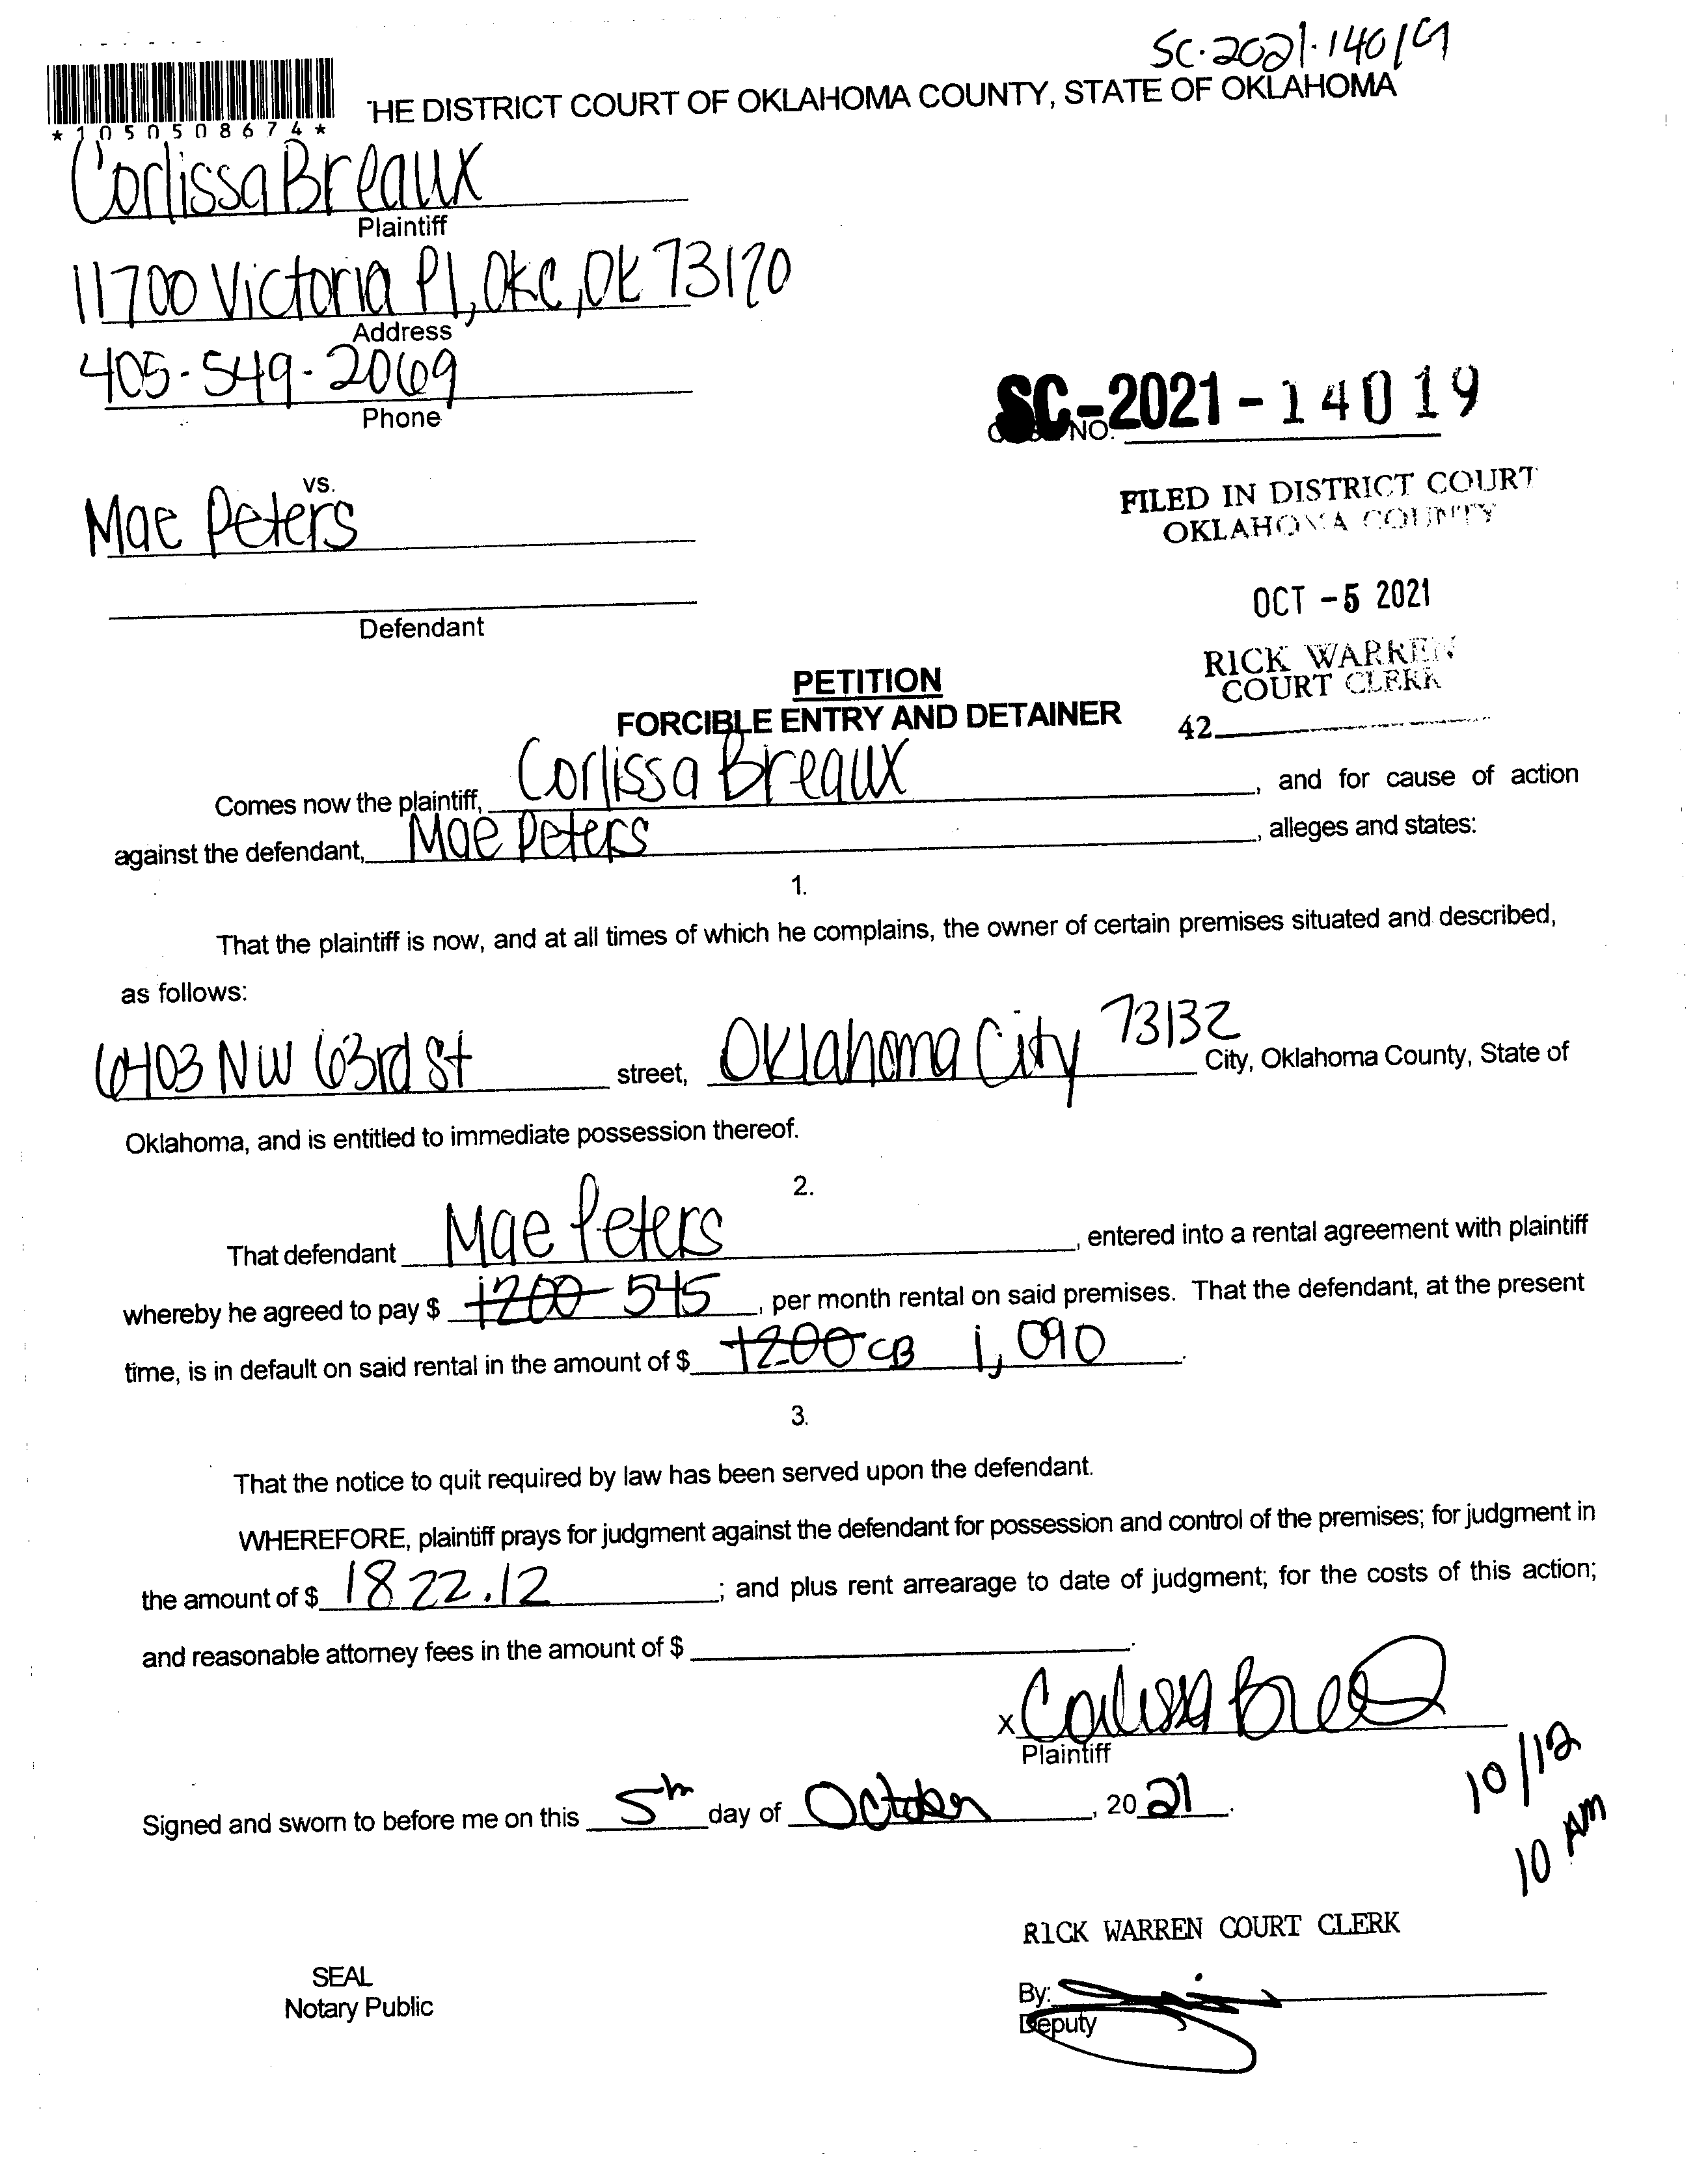 SC-2021-14019
*1050508674*
HE DISTRICT COURT OF OKLAHOMA COUNTY, STATE OF OKLAHOMA
Corlissa Breaux
Plaintiff
11700 Victoria Pl, OKC, OK 73170
Address
405-549-2069
Phone
SC-2021-14019
NO.
vs.
Mae Peters
FILED IN DISTRICT COURT
OKLAHOMA COUNTY
OCT -5 2021
Defendant
RICK WARREN
COURT CLERK
42
PETITION
FORCIBLE ENTRY AND DETAINER
Comes now the plaintiff, Corlissa Breaux, and for cause of action
against the defendant, Mae Peters, alleges and states:
1.
That the plaintiff is now, and at all times of which he complains, the owner of certain premises situated and described,
as follows:
6403 NW 63rd St street, Oklahoma City 73132 City, Oklahoma County, State of
Oklahoma, and is entitled to immediate possession thereof.
2.
That defendant Mae Peters, entered into a rental agreement with plaintiff
whereby he agreed to pay $ 1200 545, per month rental on said premises. That the defendant, at the present
time, is in default on said rental in the amount of $ 1200 CB 1,090.
3.
That the notice to quit required by law has been served upon the defendant.
WHEREFORE, plaintiff prays for judgment against the defendant for possession and control of the premises; for judgment in
the amount of $ 1822.12; and plus rent arrearage to date of judgment; for the costs of this action;
and reasonable attorney fees in the amount of $ .
x Corlissa Breaux
Plaintiff
10/12
10 AM
Signed and sworn to before me on this 5th day of October, 2021.
RICK WARREN COURT CLERK
SEAL
Notary Public
By:
Deputy